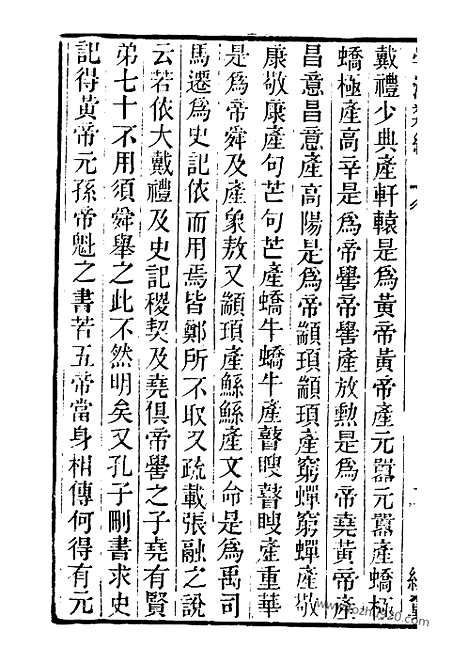 戴禮少典產軒轅是爲黃帝黃帝產元囂元囂產蟜極
蟜極產高辛是爲帝嚳帝嚳產放勳是爲帝堯黃帝產
昌意昌意產高陽是爲帝顓頊顓頊產窮蟬窮蟬產敬
康敬康產句芒句芒產蟜牛蟜牛產瞽瞍瞽瞍產重華
是爲帝舜及產象敖又顓頊產鯀鯀產文命是爲禹司
馬遷爲史記依而用焉皆鄭所不取又疏載張融之說
云若依大戴禮及史記稷契及堯俱帝嚳之子堯有賢
弟七十不用須舜舉之此不然明矣又孔子刪書求史
記得黃帝元孫帝魁之書若五帝當身相傳何得有元